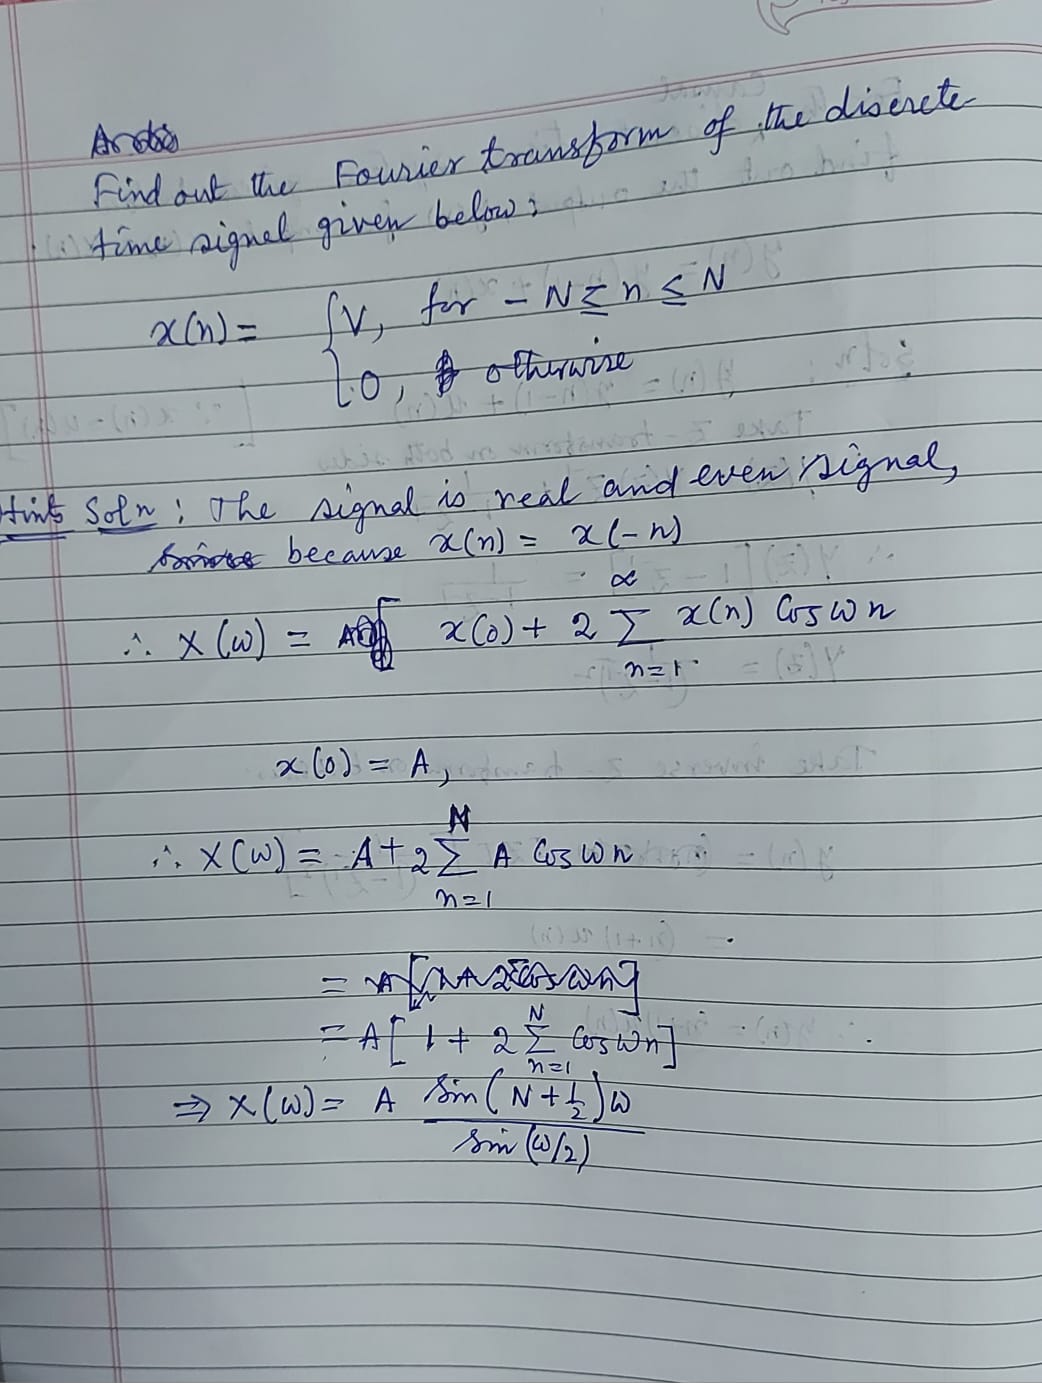 Find out the Fourier transform of the discrete
time signal given below:
x(n) = { V, for - N ≤ n ≤ N
0, otherwise
Hint Soln : The signal is real and even signal,
because x(n) = x(-n)
∴ X(ω) = x(0) + 2 ∑_{n=1}^{∞} x(n) Cos ωn
x(0) = A,
∴ X(ω) = A + 2 ∑_{n=1}^{N} A Cos ωn
= A [ 1 + 2 ∑_{n=1}^{N} Cos ωn ]
⇒ X(ω) = A sin(N + 1/2)ω / sin(ω/2)